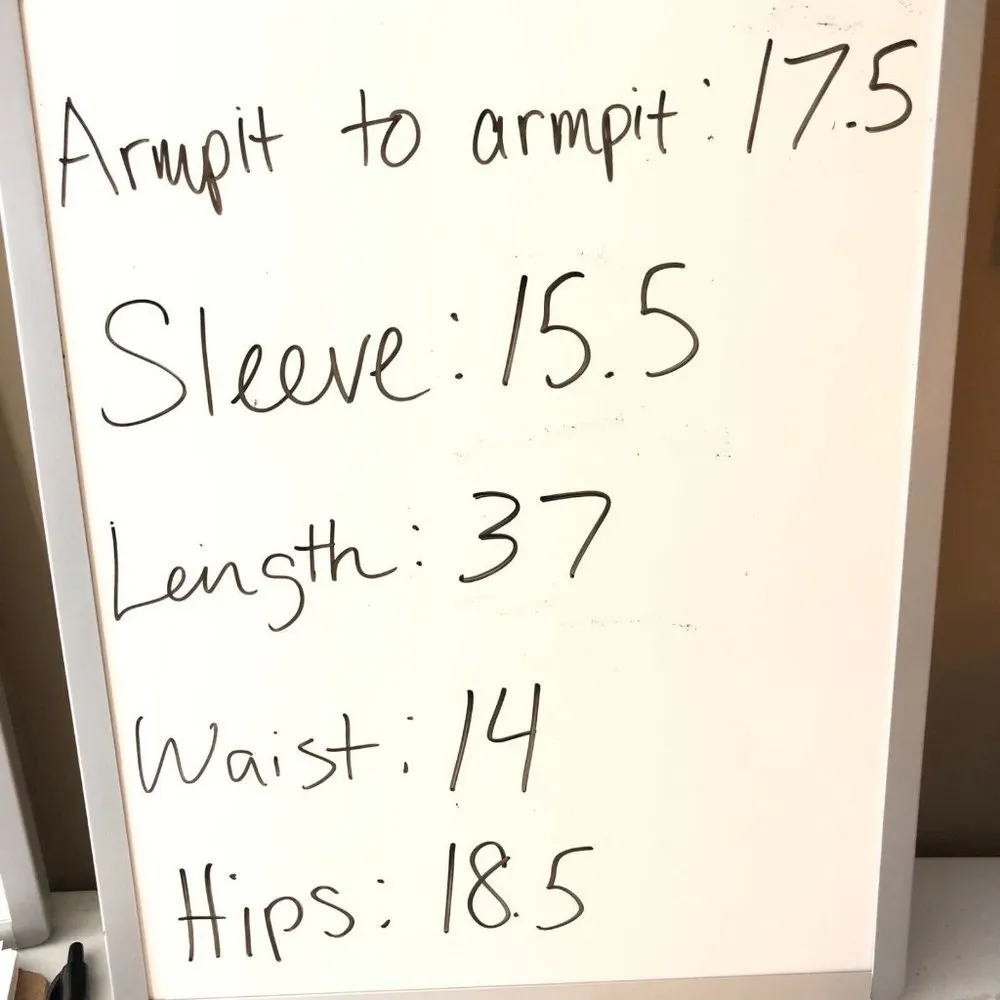 Armpit to armpit: 17.5
Sleeve: 15.5
Length: 37
Waist: 14
Hips: 18.5